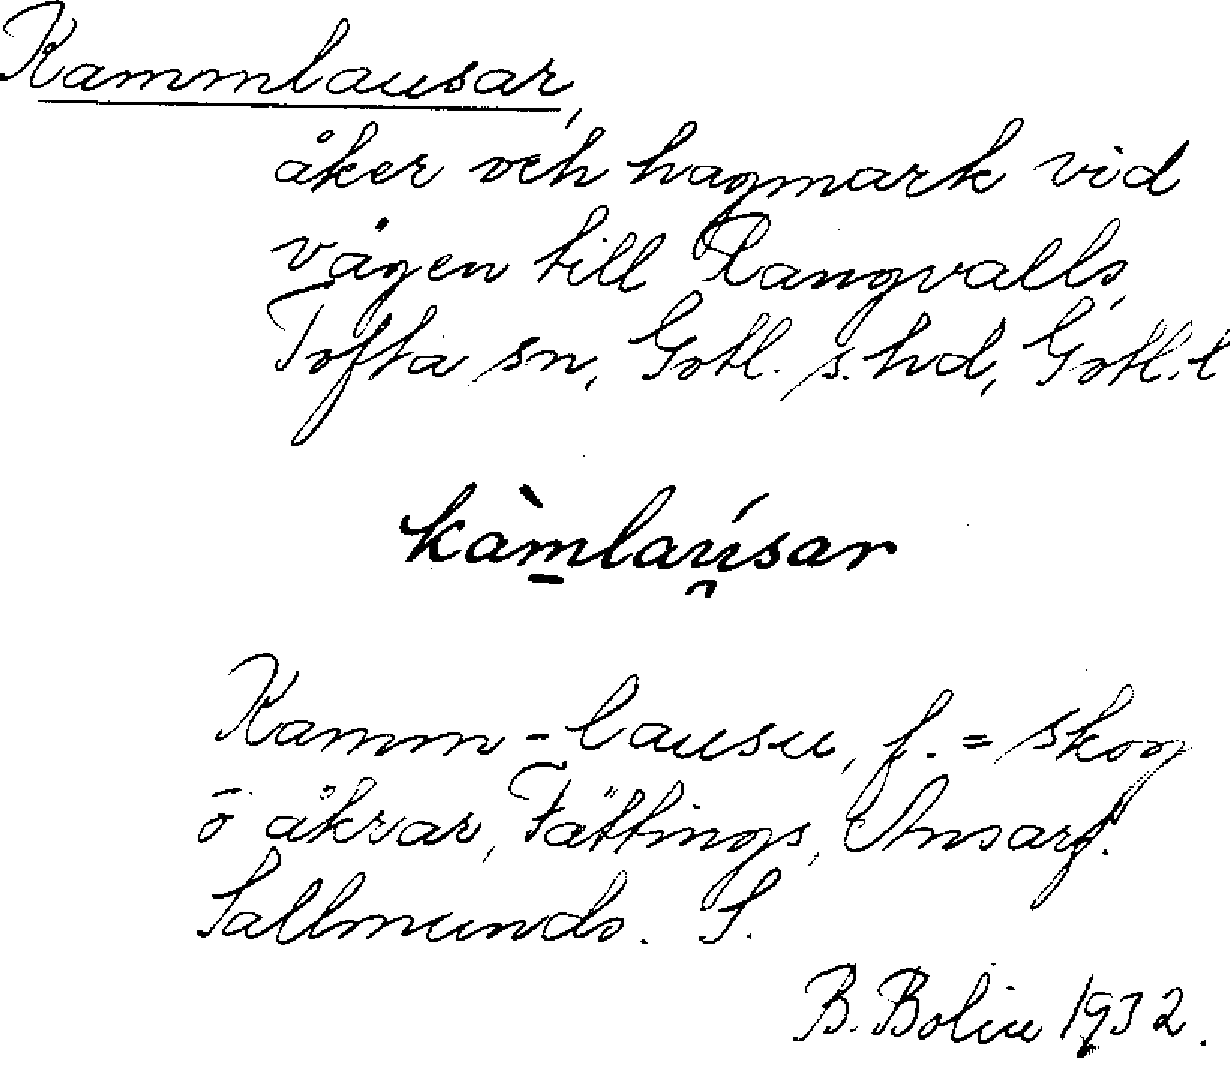 Kammlausar,
åker och hagmark vid
vägen till Rangvalls,
Tofta sn, Gotl. s. hd, Gotl. l
kàm̱laú̯sar
Kamm-lausu, f. = skog
o åkrar, Tättings,
Sallmunds. S.
B. Bolin 1932.